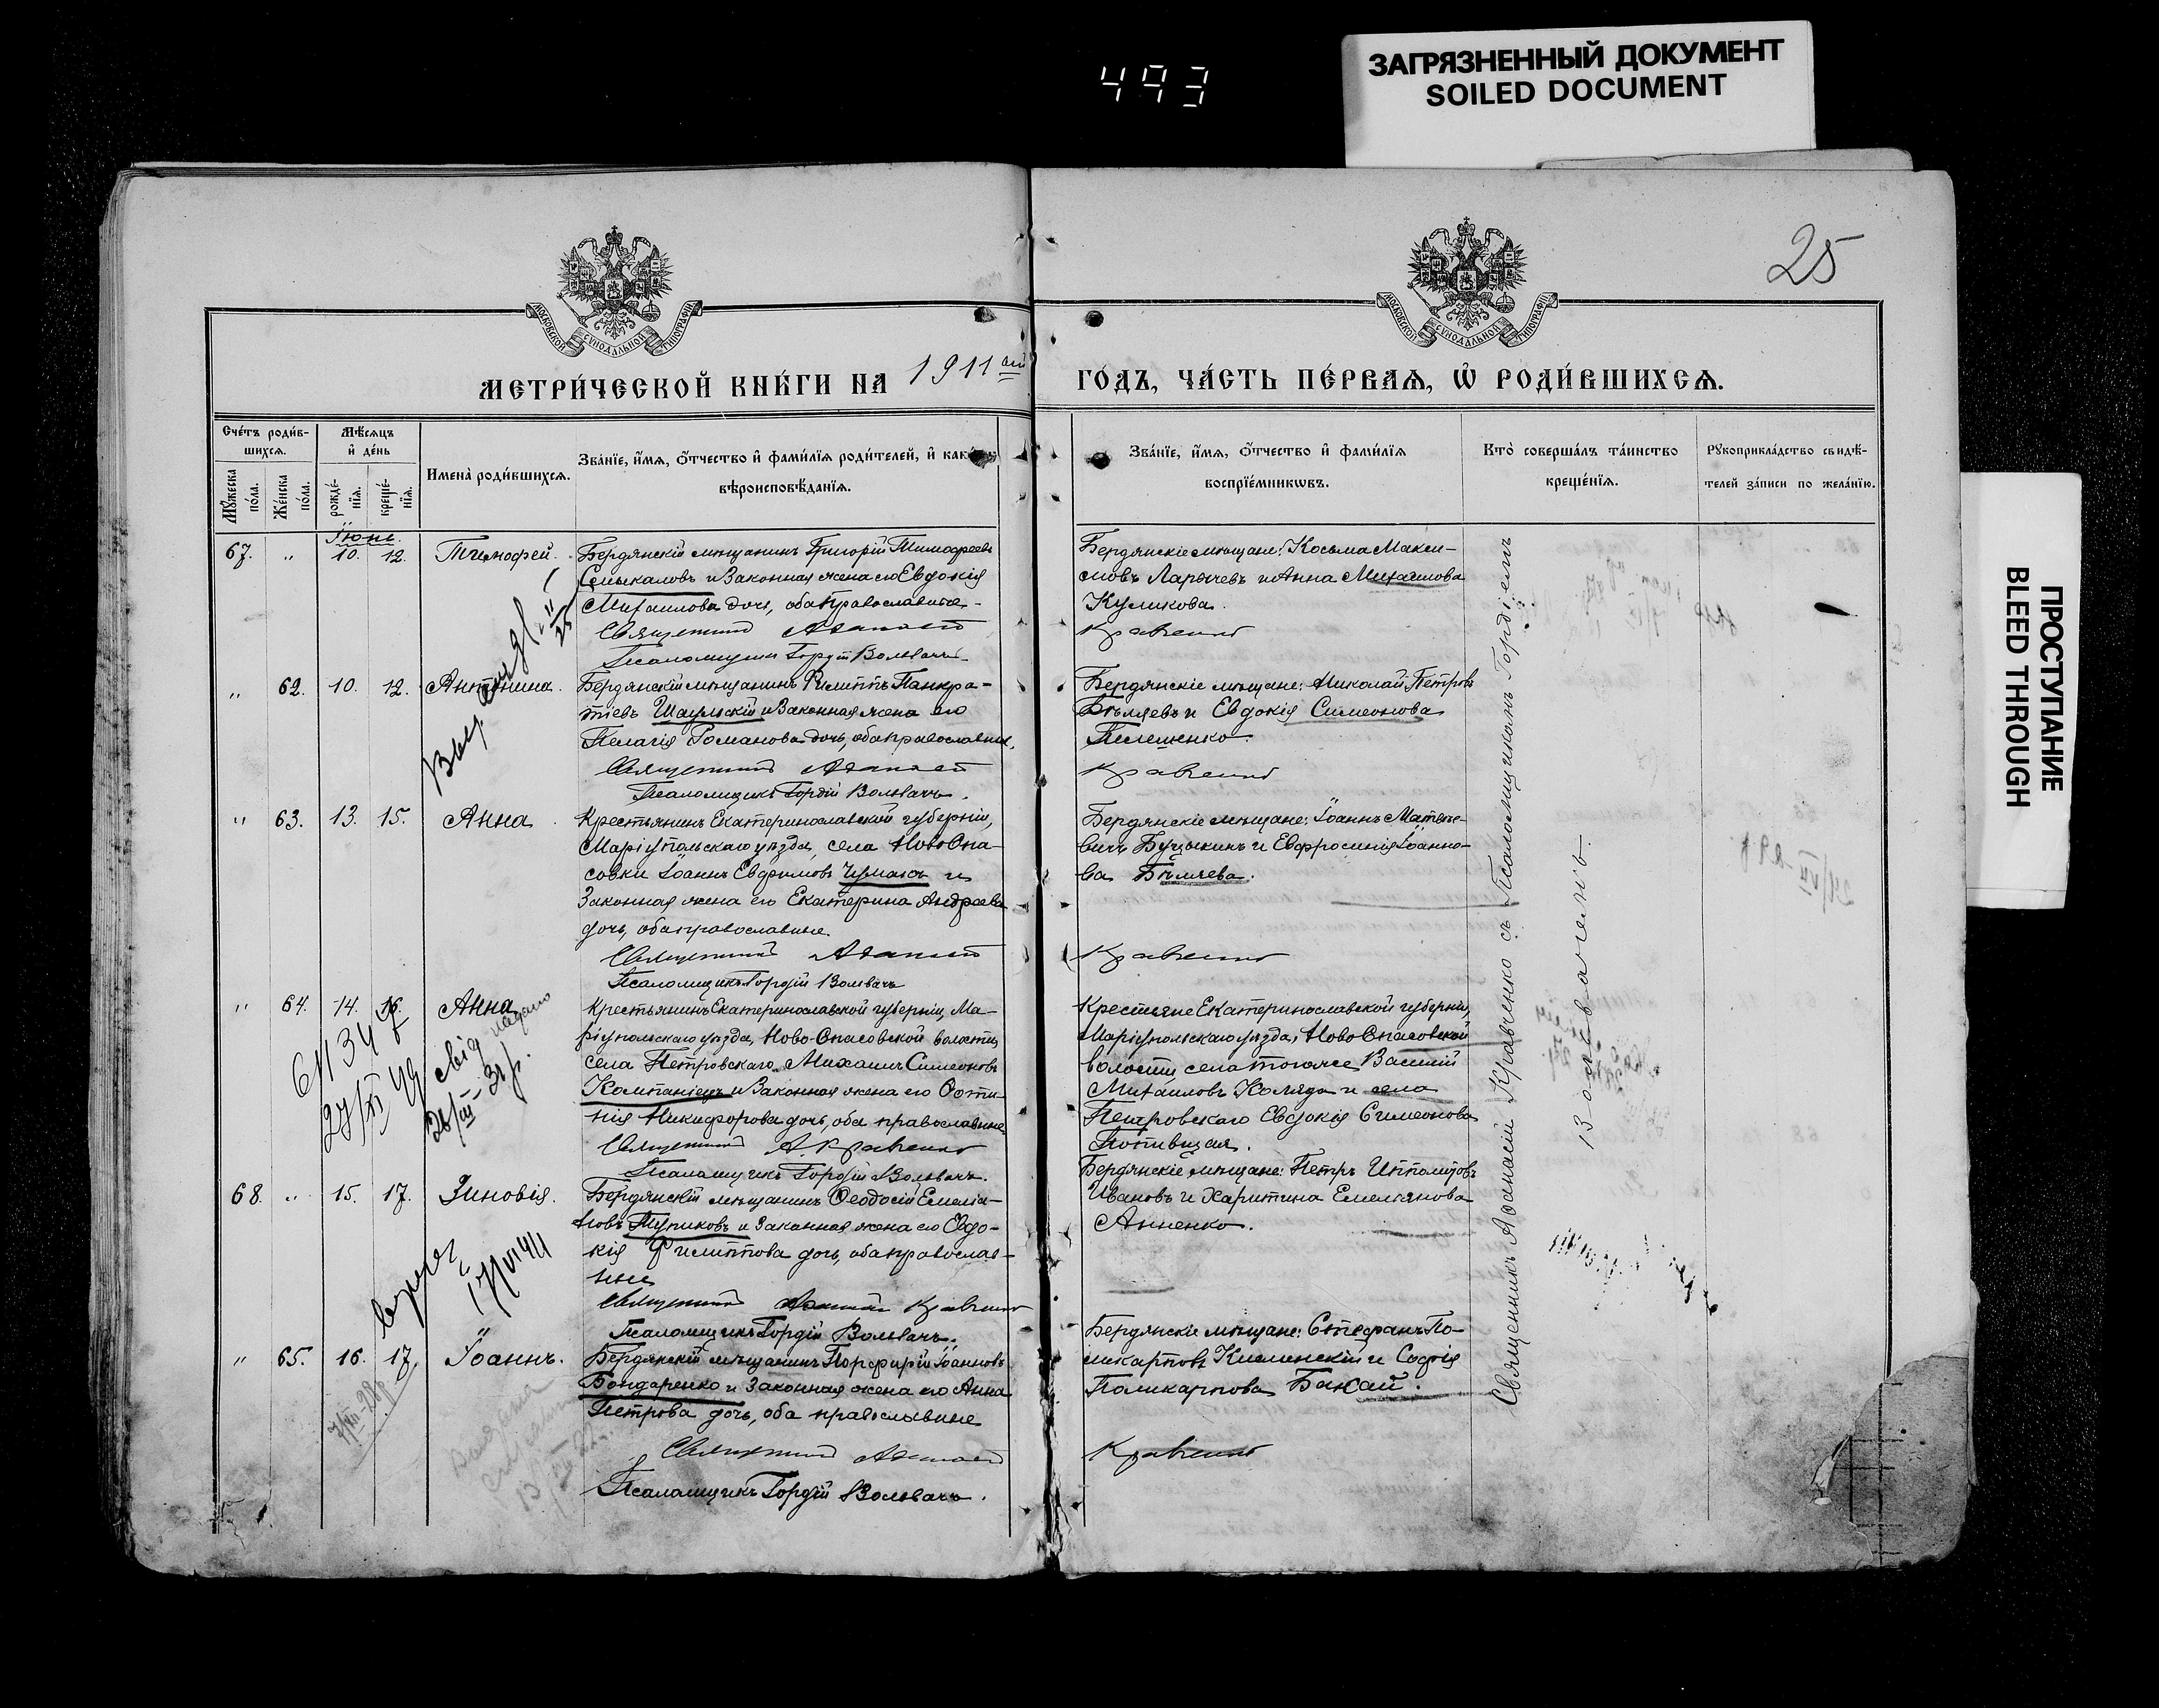 493
ЗАГРЯЗНЕННЫЙ ДОКУМЕНТ
SOILED DOCUMENT
ПРОСТУПАНИЕ
BLEED THROUGH
25
МОСКОВСКОЙ СѴНОДАЛЬНОЙ ТИПОГРАФІИ
МОСКОВСКОЙ СѴНОДАЛЬНОЙ ТИПОГРАФІИ
МЕТРИ́ЧЕСКОЙ КНИ́ГИ НА 1911 ый ГО́ДЪ, ЧА́СТЬ ПЕ́РВАѦ, Ѡ҆ РОДИ́ВШИХСѦ.
Сче́тъ роди́в-
шихсѧ.
Мꙋ́жеска по́ла.
Же́нска по́ла.
Мѣ́сѧцъ
и҆ де́нь
рожде́-
нїѧ.
креще́-
нїѧ.
Имена̀ роди́вшихсѧ.
Зва́нїе, и҆́мѧ, ѻ҆́тчество и҆ фами́лїѧ роди́телей, и҆
вѣроисповѣ́данїѧ.
Зва́нїе, и҆́мѧ, ѻ҆́тчество и҆ фами́лїѧ
воспрїе́мникѡвъ.
Кто̀ соверша́лъ та́инство
креще́нїѧ.
Рꙋкоприкла́дство свидѣ́-
телей за́писи по жела́нїю.
Іюнь.
67. " 10. 12. Тимофей.
Бердянскій мѣщанинъ Григорій Тимофеевъ
Смыкаловъ и Законная жена его Евдокія
Михаилова дочь, оба Православные.
Священникъ Афанасій
Псаломщикъ Гордій Вольвачъ
Бердянскіе мѣщане: Косьма Макси-
мовъ Ларычевъ и Анна Михаилова
Куликова.
Кравченко
" 62. 10. 12. Антонина.
Бердянскій мѣщанинъ Филиппъ Панкра-
тіевъ Шаульскій и Законная жена его
Пелагія Романова дочь, оба православные.
Священникъ Афанасій
Псаломщикъ Гордій Вольвачъ.
Бердянскіе мѣщане: Николай Петровъ
Бѣляевъ и Евдокія Симеонова
Пелешенко.
Кравченко
" 63. 13. 15. Анна.
Крестьянинъ Екатеринославской губерніи,
Маріупольскаго уѣзда, села Ново Спа-
совки Іоаннъ Евфимовъ Чумакъ и
Законная жена его Екатерина Андреева
дочь, оба православные.
Священникъ Афанасій
Псаломщикъ Гордій Вольвачъ
Бердянскіе мѣщане: Іоаннъ Матѳѣе-
вичъ Буцыкинъ и Евфросинія Іоанно-
ва Бѣляева.
Кравченко
" 64. 14. 16. Анна
Крестьянинъ Екатеринославской губерніи, Ма-
ріупольскаго уѣзда, Ново-Спасовской волости,
села Петровскаго Михаилъ Симеоновъ
Компаніецъ и Законная жена его Фоти-
нія Никифорова дочь, оба православные
Священникъ А. Кравченко
Псаломщикъ Гордій Вольвачъ.
Крестьяне Екатеринославской губерніи,
Маріупольскаго уѣзда, Ново Спасовской
волости села тогоже Василій
Михаиловъ Коляда и села
Петровскаго Евдокія Симеонова
68. " 15. 17. Зиновія.
Бердянскій мѣщанинъ Феодосій Емелiа-
новъ Пуриковъ и Законная жена его Евдо-
кія Филиппова дочь, оба православ-
ные
Священникъ Афанасій Кравченко
Псаломщикъ Гордій Вольвачъ.
17/VI 44
Бердянскіе мѣщане: Петръ Ипполитовъ
Ивановъ и Харитина Емельянова
Анненко.
" 65. 16. 17. Іоаннъ.
Бердянскій мѣщанинъ Порфирій Іоанновъ
Бондаренко и Законная жена его Анна
Петрова дочь, оба православные
Священникъ Афанасій
Псаломщикъ Гордій Вольвачъ.
Бердянскіе мѣщане: Стефанъ По-
ликарповъ Кислинскій и Софія
Поликарпова Бакай.
Кравченко
Священникъ Афанасій Кравченко съ Псаломщикомъ Гордіемъ
Вольвачемъ.